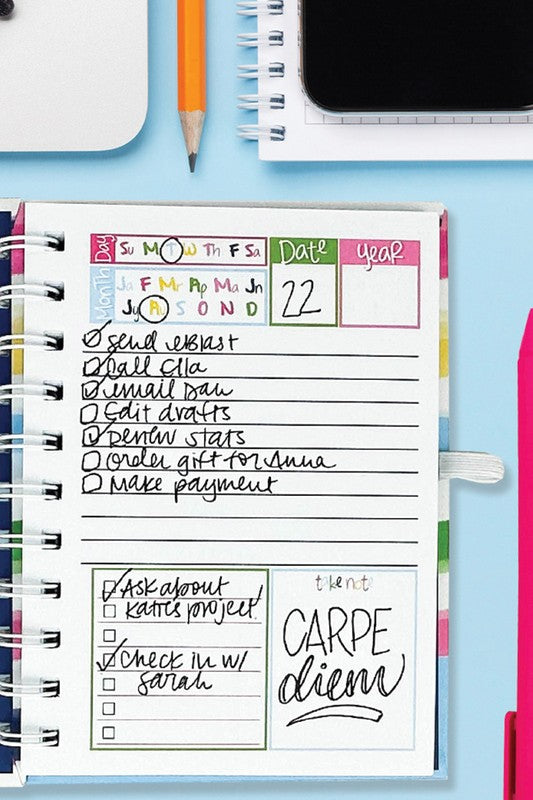 Day Su M T W Th F Sa
Date
Year
Month Ja F Mr Ap Ma Jn
Jy Au S O N D
22
Send eBlast
Call Ella
email Dan
Edit drafts
Renew stats
Order gift for Anna
Make payment
Ask about
Katie's project!
Check in w/
Sarah
take note
CARPE
diem